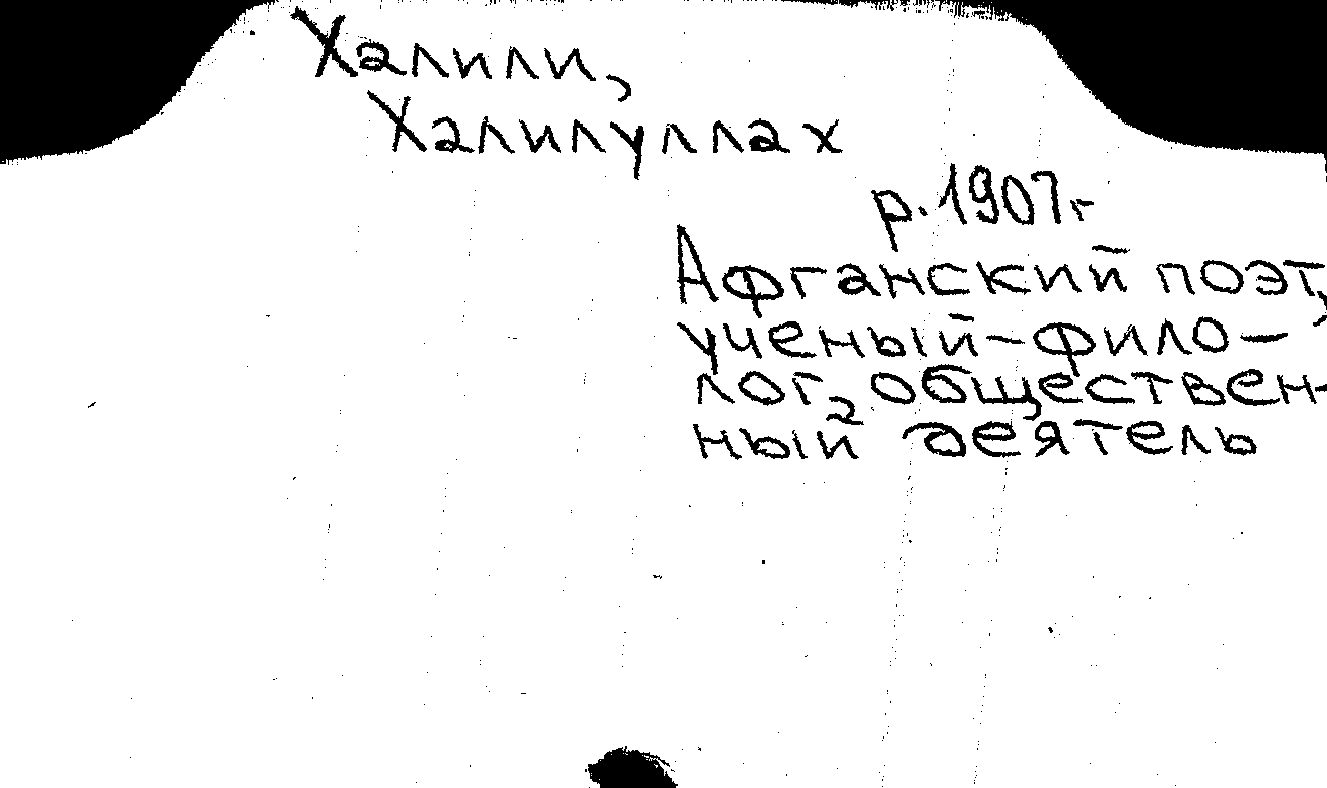 Халили,
Халилуллах
р. 1907г
Афганский поэт,
ученый-фило-
лог, обществен-
ный деятель